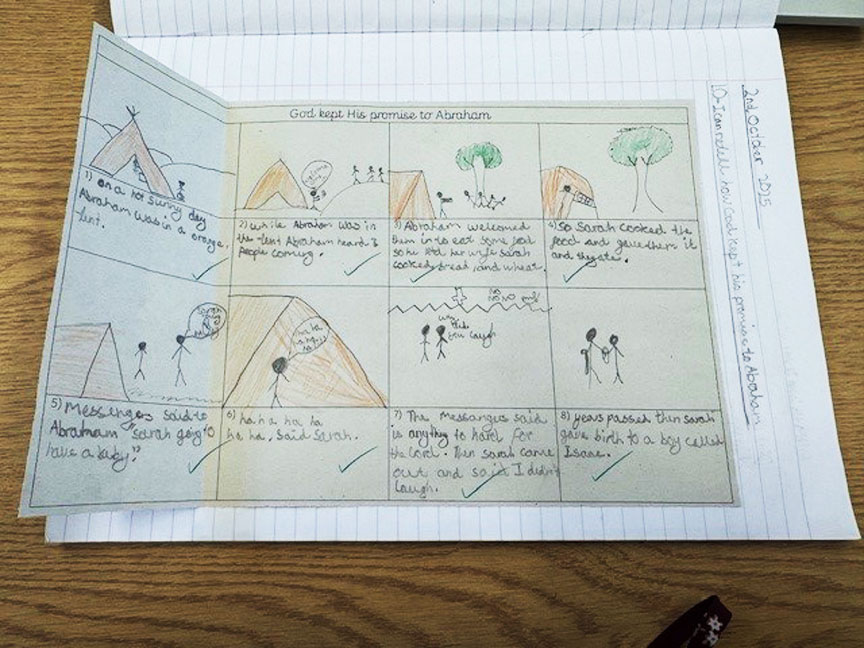 2nd October 2025
LO-I can retell how God kept his promise to Abraham
God kept His promise to Abraham
1) on a hot sunny day
Abraham was in a orange
tent.
2) while Abraham was in
the tent Abraham heard 3
people coming.
3) Abraham welcomed
them in to eat some food
so he told her wife Sarah
cooked bread, and wheat.
4) So Sarah cooked the
food and gave them it
and they ate.
Sarah
5) Messengers said to
Abraham "Sarah going to
have a baby."
ha ha
ha ha ha
ha!
6) ha ha ha ha
ha ha, said Sarah.
NO
NO NO
why
did
you laugh
7) The Messangers said
is anything to hard for
the Lord. Then Sarah came
out and said I didn't
laugh.
8) years passed then Sarah
gave birth to a boy called
Isaac.